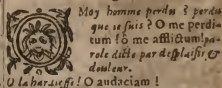 Moy homme perdos ? perdu
que je suis ? O me perdi-
tum ! ô me afflictum! pa-
role dicte par desplaisir, &
douleur.
O la hardiesse ! O audaciam !